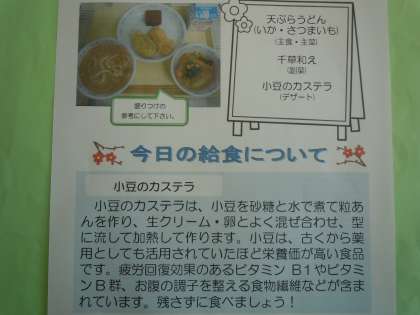 天ぷらうどん
(いか・さつまいも)
(主食・主菜)
千草和え
(副菜)
小豆のカステラ
(デザート)
盛りつけの
参考にして下さい。
今日の給食について
小豆のカステラ
小豆のカステラは、小豆を砂糖と水で煮て粒あ
んを作り、生クリーム・卵とよく混ぜ合わせ、型
に流して加熱して作ります。小豆は、古くから薬
用としても活用されていたほど栄養価が高い食
品です。疲労回復効果のあるビタミン B1やビタミ
ンB群、お腹の調子を整える食物繊維などが含ま
れています。残さずに食べましょう！